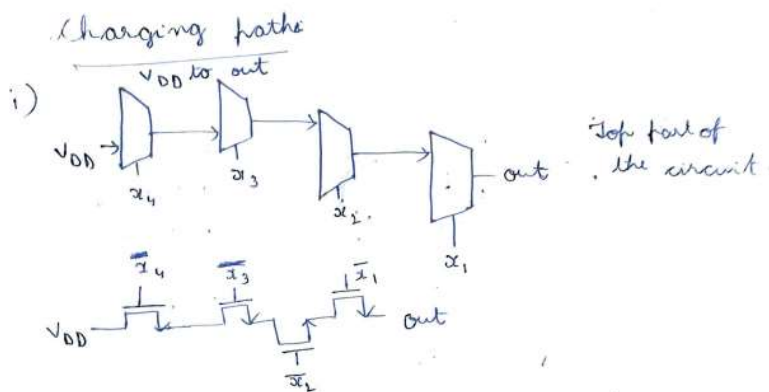 Charging paths
VDD to out
i)
VDD
x4
x3
x2.
x1
out
Top part of
the circuit
x̄4
x̄3
x̄1
VDD
out
x̄2